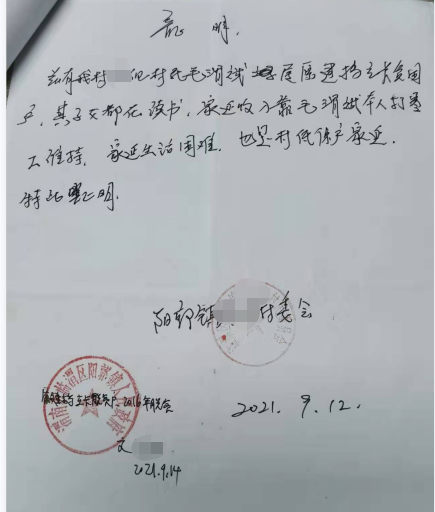 证明.
兹有我村 组村民毛消斌 属建档立卡贫困
户, 其子女都在读书, 家庭收入靠毛消斌本人打零
工维持, 家庭生活困难. 也是村低保户家庭.
特此证明.
阳郭镇 村委会
渭南市临渭区阳郭镇人民政府
属建档立卡贫困户, 2016年脱贫
2021. 9. 12.
文
2021.9.14